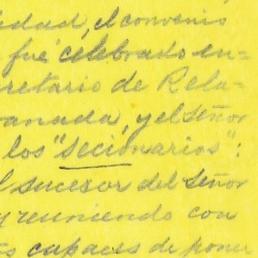 idad, el convenio
fué celebrado en-
retario de Rela-
anada, y el señor
los "secionarios":
l sucesor del señor
y reuniendo con
s capaces de poner